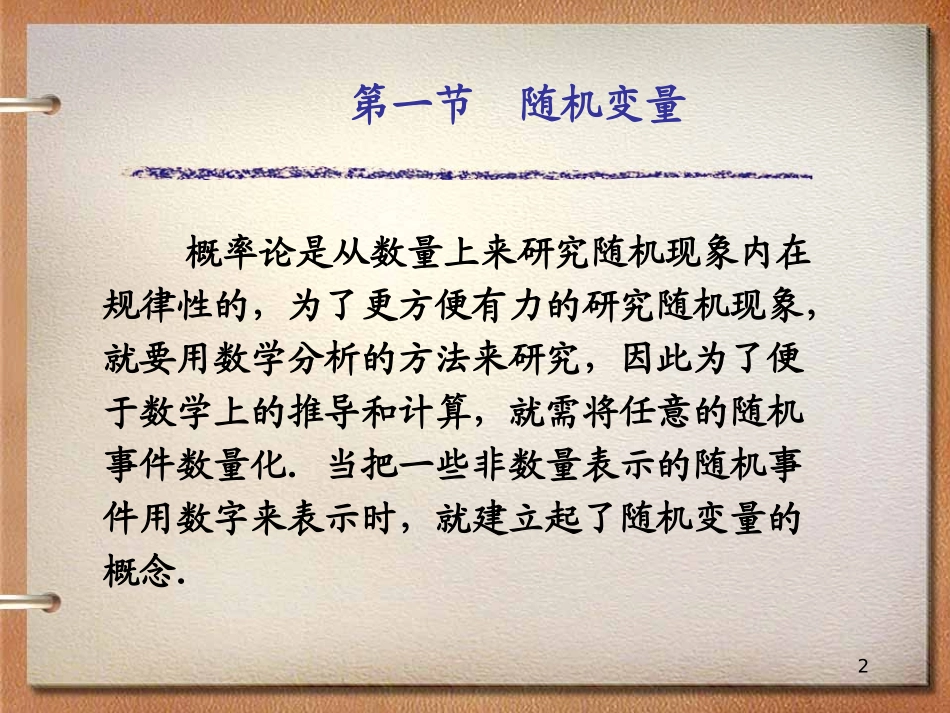 第一节　随机变量
概率论是从数量上来研究随机现象内在
规律性的，为了更方便有力的研究随机现象，
就要用数学分析的方法来研究，因此为了便
于数学上的推导和计算，就需将任意的随机
事件数量化．当把一些非数量表示的随机事
件用数字来表示时，就建立起了随机变量的
概念．
2